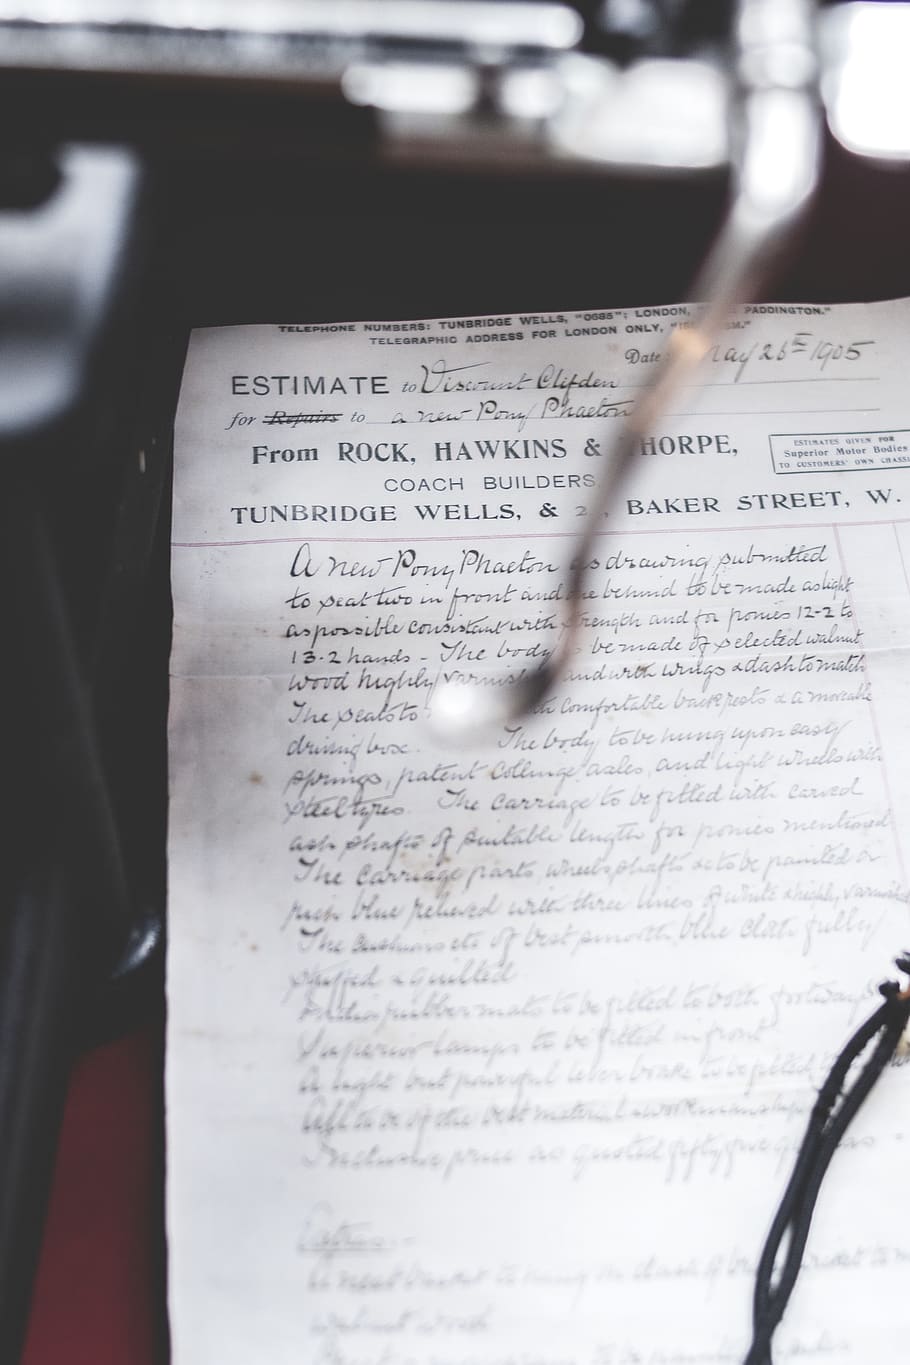 TELEPHONE NUMBERS: TUNBRIDGE WELLS, "0685"; LONDON, PADDINGTON."
TELEGRAPHIC ADDRESS FOR LONDON ONLY,
Date May 26th 1905
ESTIMATE to Viscount Clifden
for Repairs to a new Pony Phaeton
From ROCK, HAWKINS & THORPE,
ESTIMATES GIVEN FOR
Superior Motor Bodies
TO CUSTOMERS' OWN CHASSIS
COACH BUILDERS,
TUNBRIDGE WELLS, & BAKER STREET, W.
A new Pony Phaeton as drawing submitted
to seat two in front and one behind to be made as light
as possible consistent with strength and for ponies 12-2 to
13.2 hands - The body to be made of selected walnut
wood highly varnished and with wings & dash to match
The seats to with comfortable backrests & a moveable
driving box. The body to be hung upon easy
springs, patent Collinge axles, and light wheels with
steel tyres. The carriage to be fitted with carved
ash shafts of suitable length for ponies mentioned
The carriage parts, wheels, shafts &c to be painted a
rich blue relieved with three lines of white & highly varnished
The cushions etc of best smooth blue cloth fully
stuffed & quilted
rubber mats to be fitted to both footways
Superior lamps to be fitted in front
A light but powerful lever brake to be fitted
All to be of the best material & workmanship
Inclusive price as quoted fifty five
Extras
A neat basket to hang on dash of
walnut wood